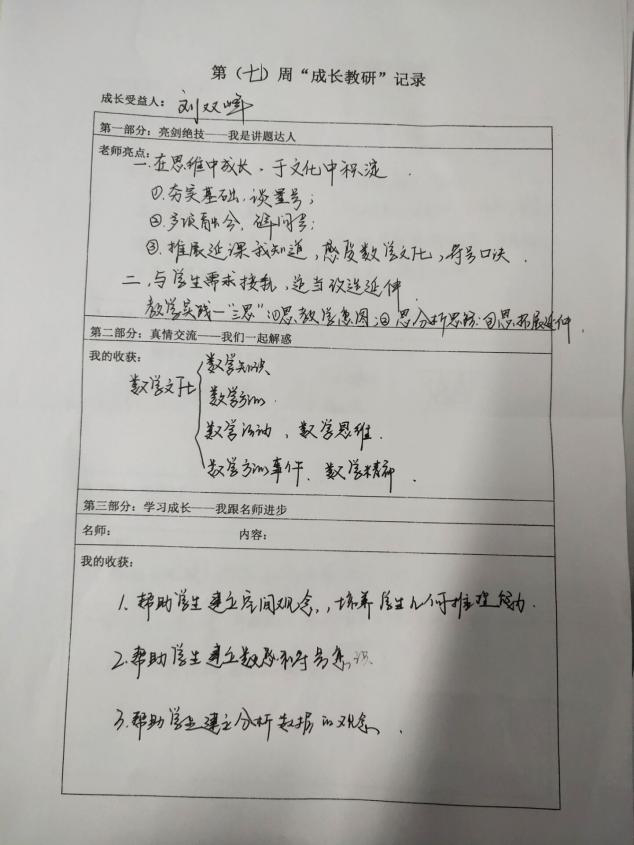 第（七）周“成长教研”记录
成长受益人：刘双峰
第一部分：亮剑绝技——我是讲题达人
老师亮点：
一.在思维中成长、于文化中积淀.
①.夯实基础、谈量号；
②.多项融会，
③.推展延课我知道，感受数学文化，符号口诀.
二、与学生需求接轨，适当改造延伸
教学实践—“三思”：①思教学意图；②思分析思路；③思拓展延伸.
第二部分：真情交流——我们一起解惑
我的收获：
数学文化
数学知识
数学方法.
数学活动、数学思维.
数学方法事件、数学精神.
第三部分：学习成长——我跟名师进步
名师： 内容：
我的收获：
1.帮助学生建立空间观念，，培养学生几何推理能力.
2.帮助学生建立数感和符号意识
3.帮助学生建立分析数据的观念.